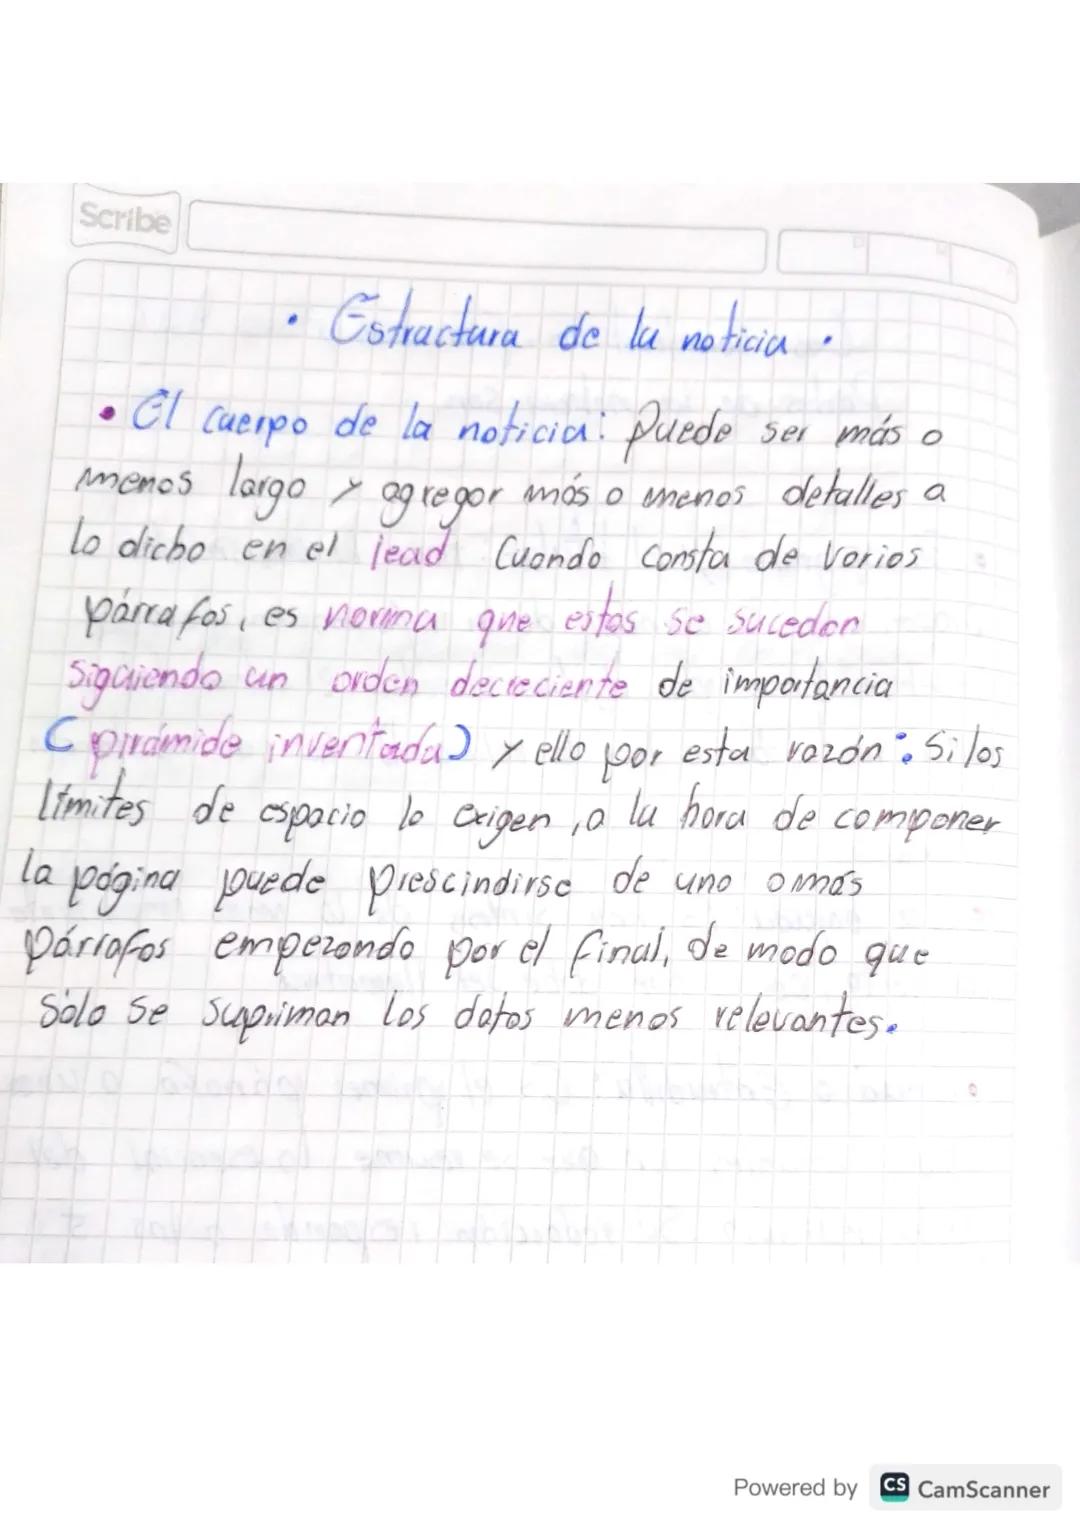 Scribe
• Estructura de la noticia •
• El cuerpo de la noticia: Puede ser más o
menos largo y agregar más o menos detalles a
lo dicho en el lead Cuando consta de varios
párrafos, es norma que estos se sucedan
siguiendo un orden decreciente de importancia
(pirámide inventada) y ello por esta razón: Si los
límites de espacio lo exigen, a la hora de componer
la página puede prescindirse de uno o más
párrafos empezando por el final, de modo que
sólo se supriman los datos menos relevantes.
Powered by CS CamScanner